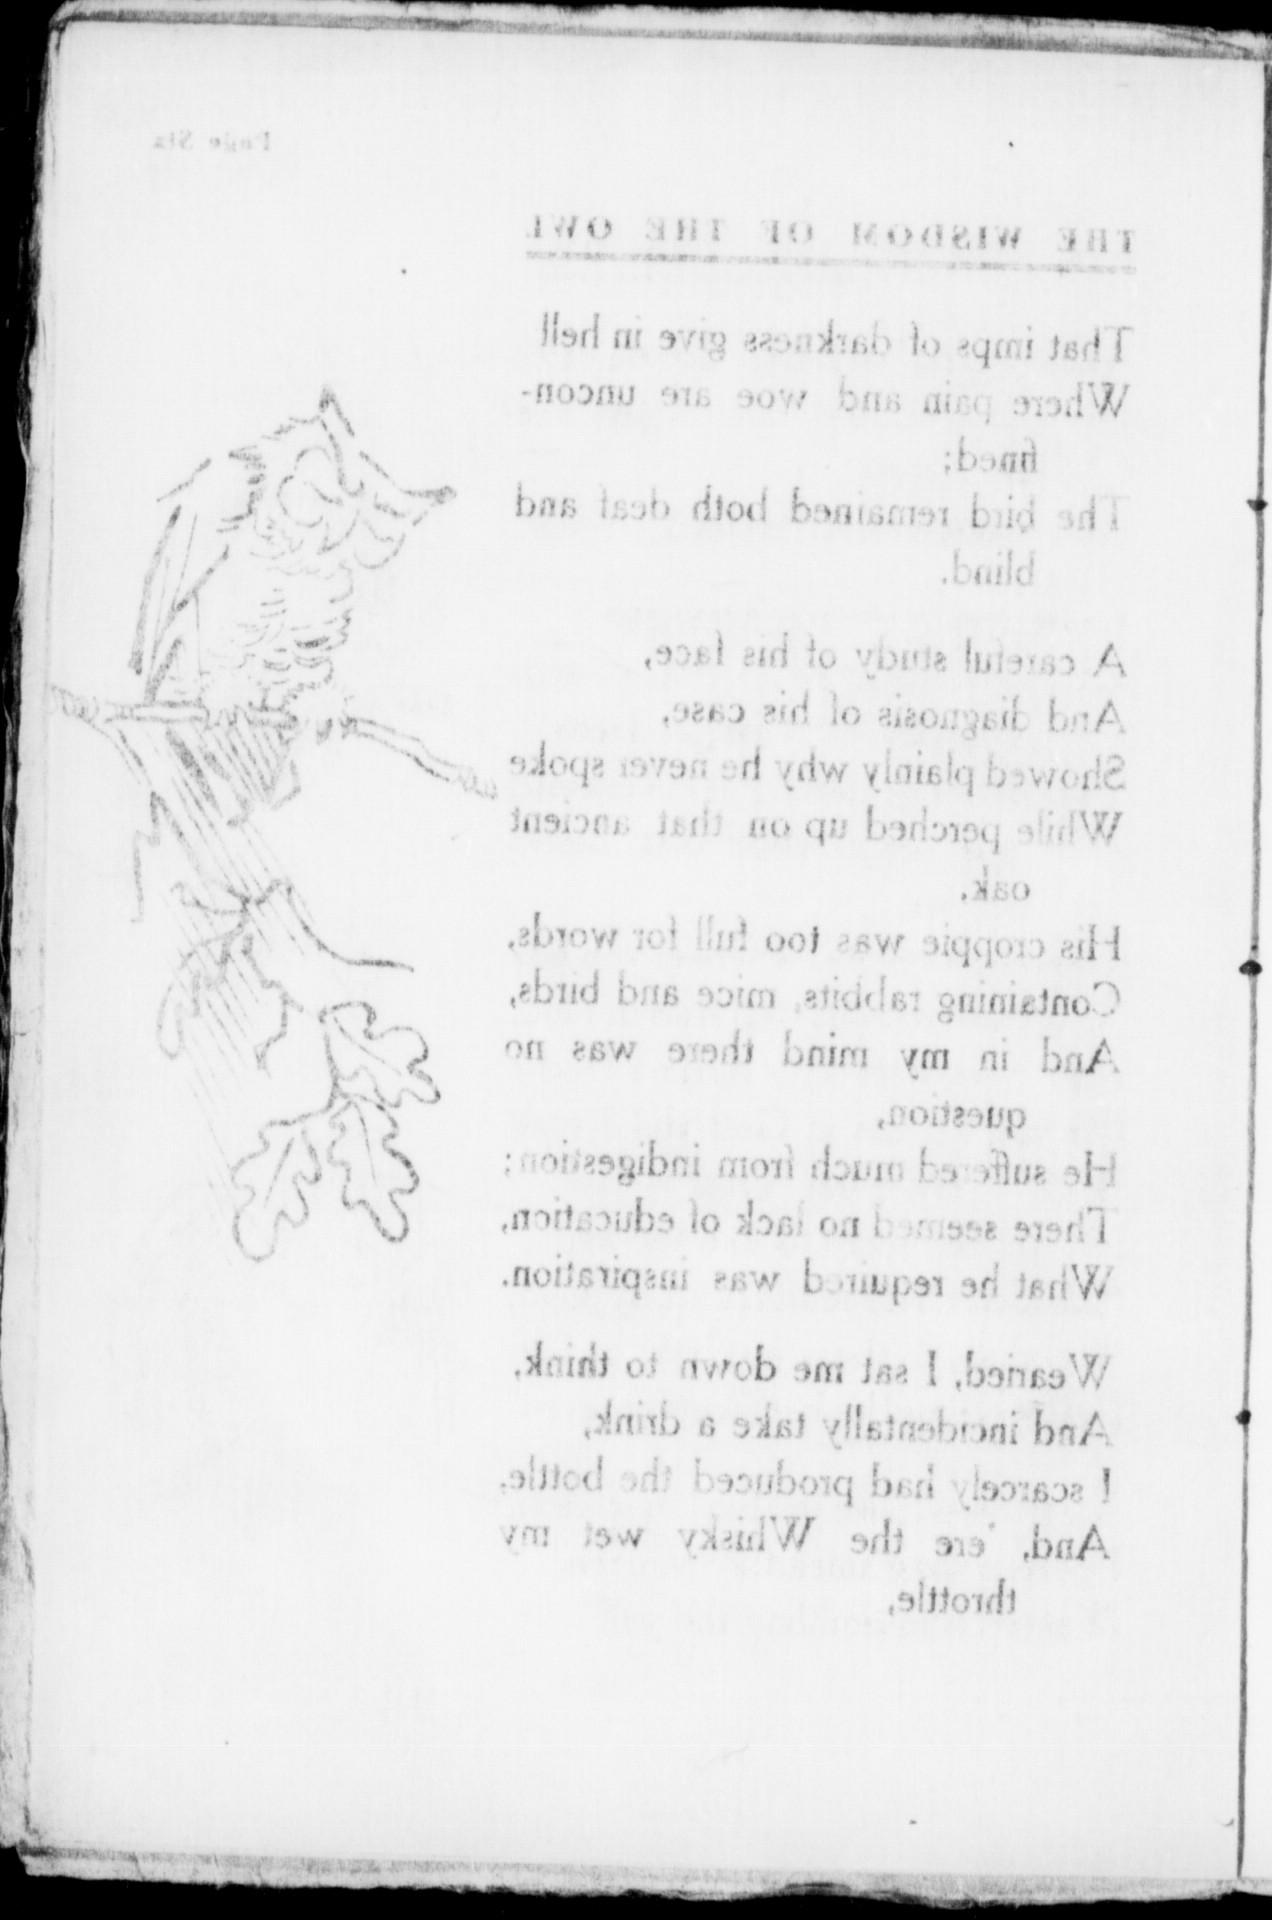 Page Six
THE WISDOM OF THE OWL
That imps of darkness give in hell
Where pain and woe are uncon-
fined;
The bird remained both deaf and
blind.
A careful study of his face,
And diagnosis of his case,
Showed plainly why he never spoke
While perched up on that ancient
oak.
His croppie was too full for words,
Containing rabbits, mice and birds,
And in my mind there was no
question,
He suffered much from indigestion;
There seemed no lack of education,
What he required was inspiration.
Wearied, I sat me down to think,
And incidentally take a drink,
I scarcely had produced the bottle,
And, 'ere the Whisky wet my
throttle,